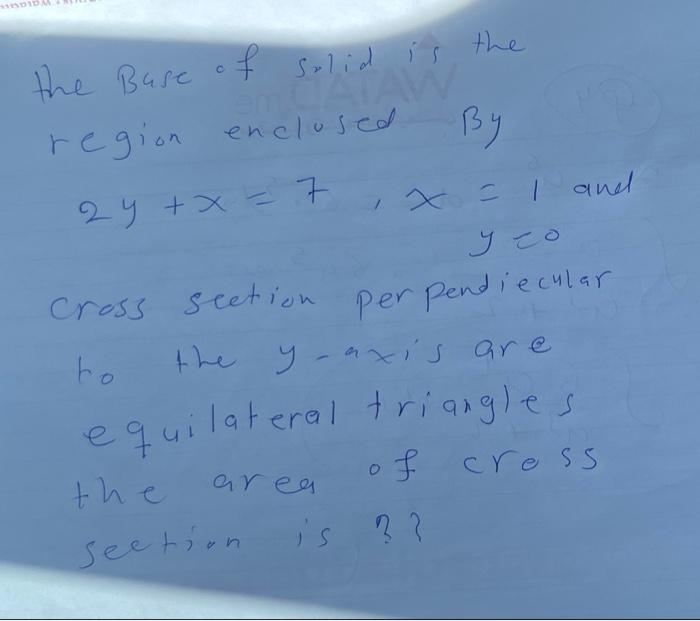 the Base of solid is the
region enclosed By
2y + x = 7 , x = 1 and
y = 0
cross section perpendiecular
to the y-axis are
equilateral triangles
the area of cross
section is ??